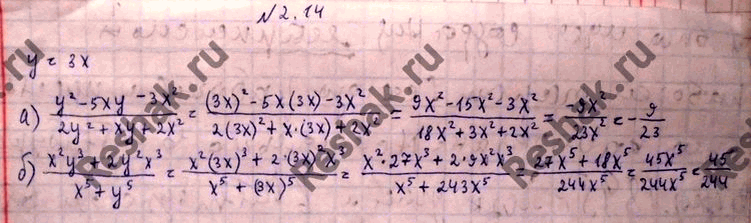 №2.14
y = 3x
а) (y² - 5xy - 3x²)/(2y² + xy + 2x²) = ((3x)² - 5x(3x) - 3x²)/(2(3x)² + x·(3x) + 2x²) = (9x² - 15x² - 3x²)/(18x² + 3x² + 2x²) = (-9x²)/(23x²) = -9/23
б) (x²y³ + 2y²x³)/(x⁵ + y⁵) = (x²(3x)³ + 2·(3x)²x³)/(x⁵ + (3x)⁵) = (x²·27x³ + 2·9x²x³)/(x⁵ + 243x⁵) = (27x⁵ + 18x⁵)/(244x⁵) = (45x⁵)/(244x⁵) = 45/244
Reshak.ru
Reshak.ru
Reshak.ru
Reshak.ru